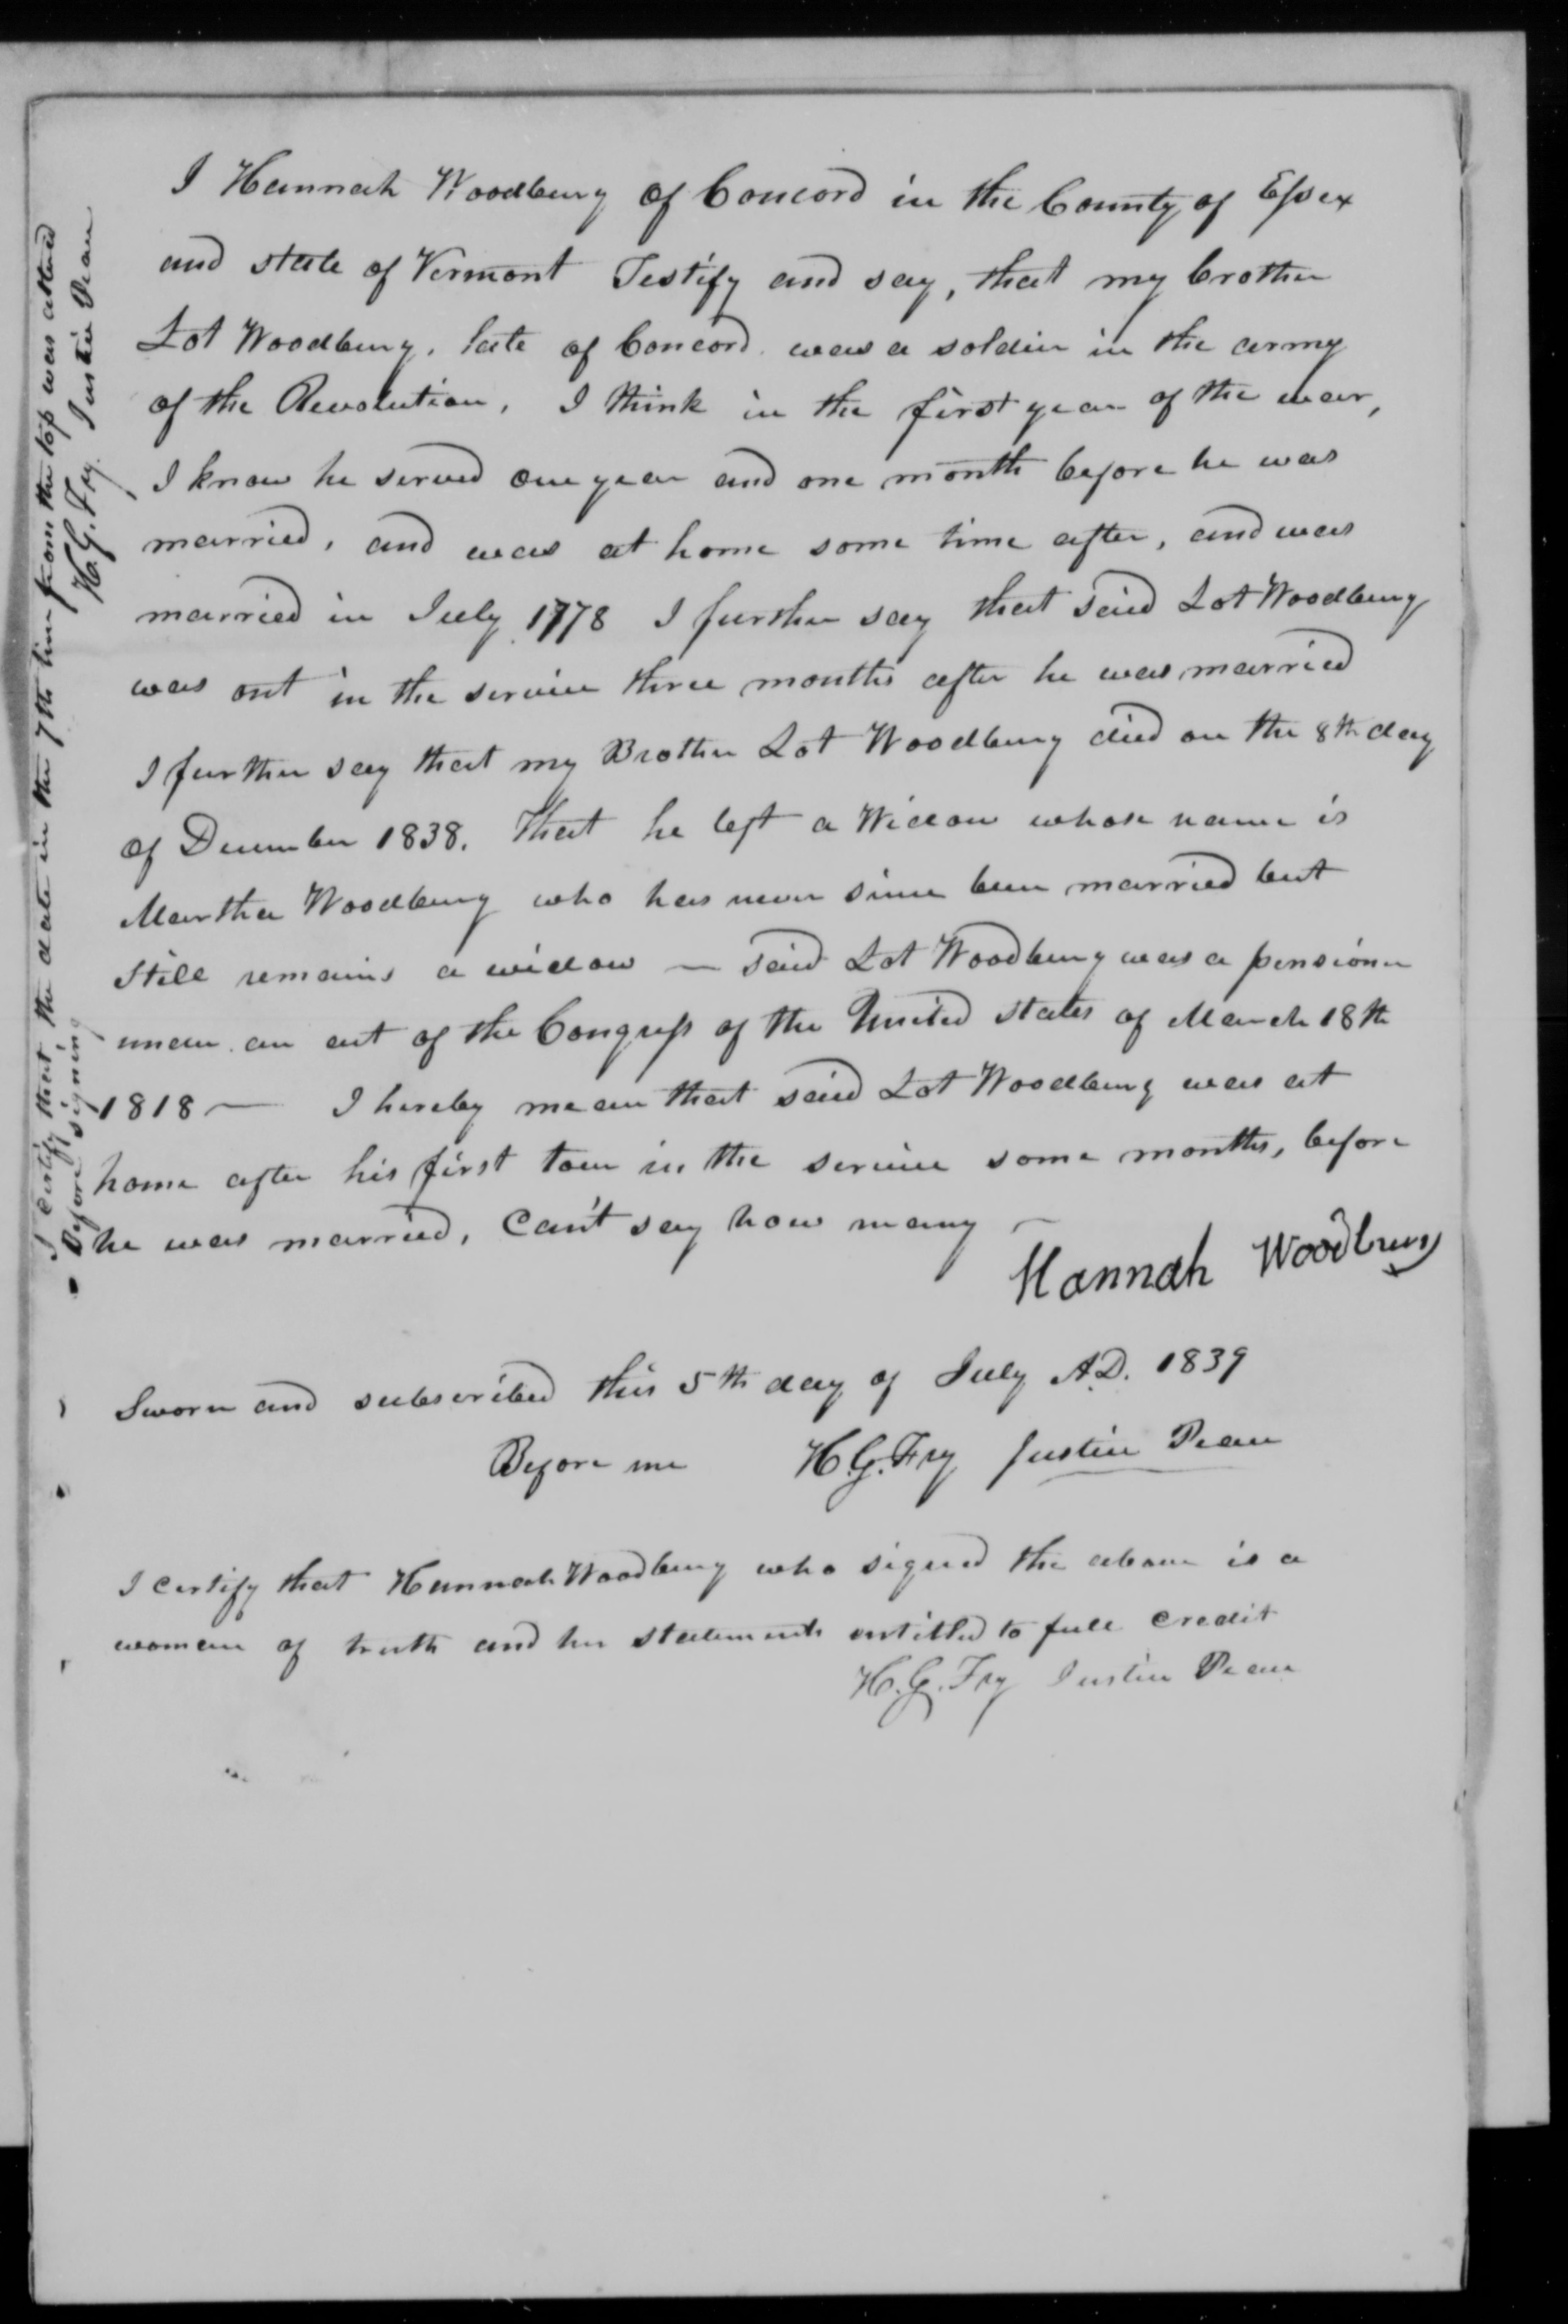 I Hannah Woodbury of Concord in the County of Essex
and state of Vermont Testify and say, that my brother
Lot Woodbury, late of Concord was a soldier in the army
of the Revolution, I think in the first year of the war,
I know he served one year and one month before he was
married, and was at home some time after, and was
married in July 1778 I further say that said Lot Woodbury
was out in the service three months after he was married
I further say that my Brother Lot Woodbury died on the 8th day
of December 1838. That he left a Widow whose name is
Martha Woodbury who has never since been married but
still remains a widow — said Lot Woodbury was a pensioner
under an act of the Congress of the United States of March 18th
1818 — I hereby mean that said Lot Woodbury was at
home after his first tour in the service some months, before
he was married, Can't say how many —
Hannah Woodbury
Sworn and subscribed this 5th day of July A.D. 1839
Before me H.G. Fry Justice Peace
I certify that Hannah Woodbury who signed the above is a
woman of truth and her statements entitled to full credit
H.G. Fry Justice Peace
I certify that the date in the 7th line from the top was altered
Before signing H.G. Fry. Justice Peace